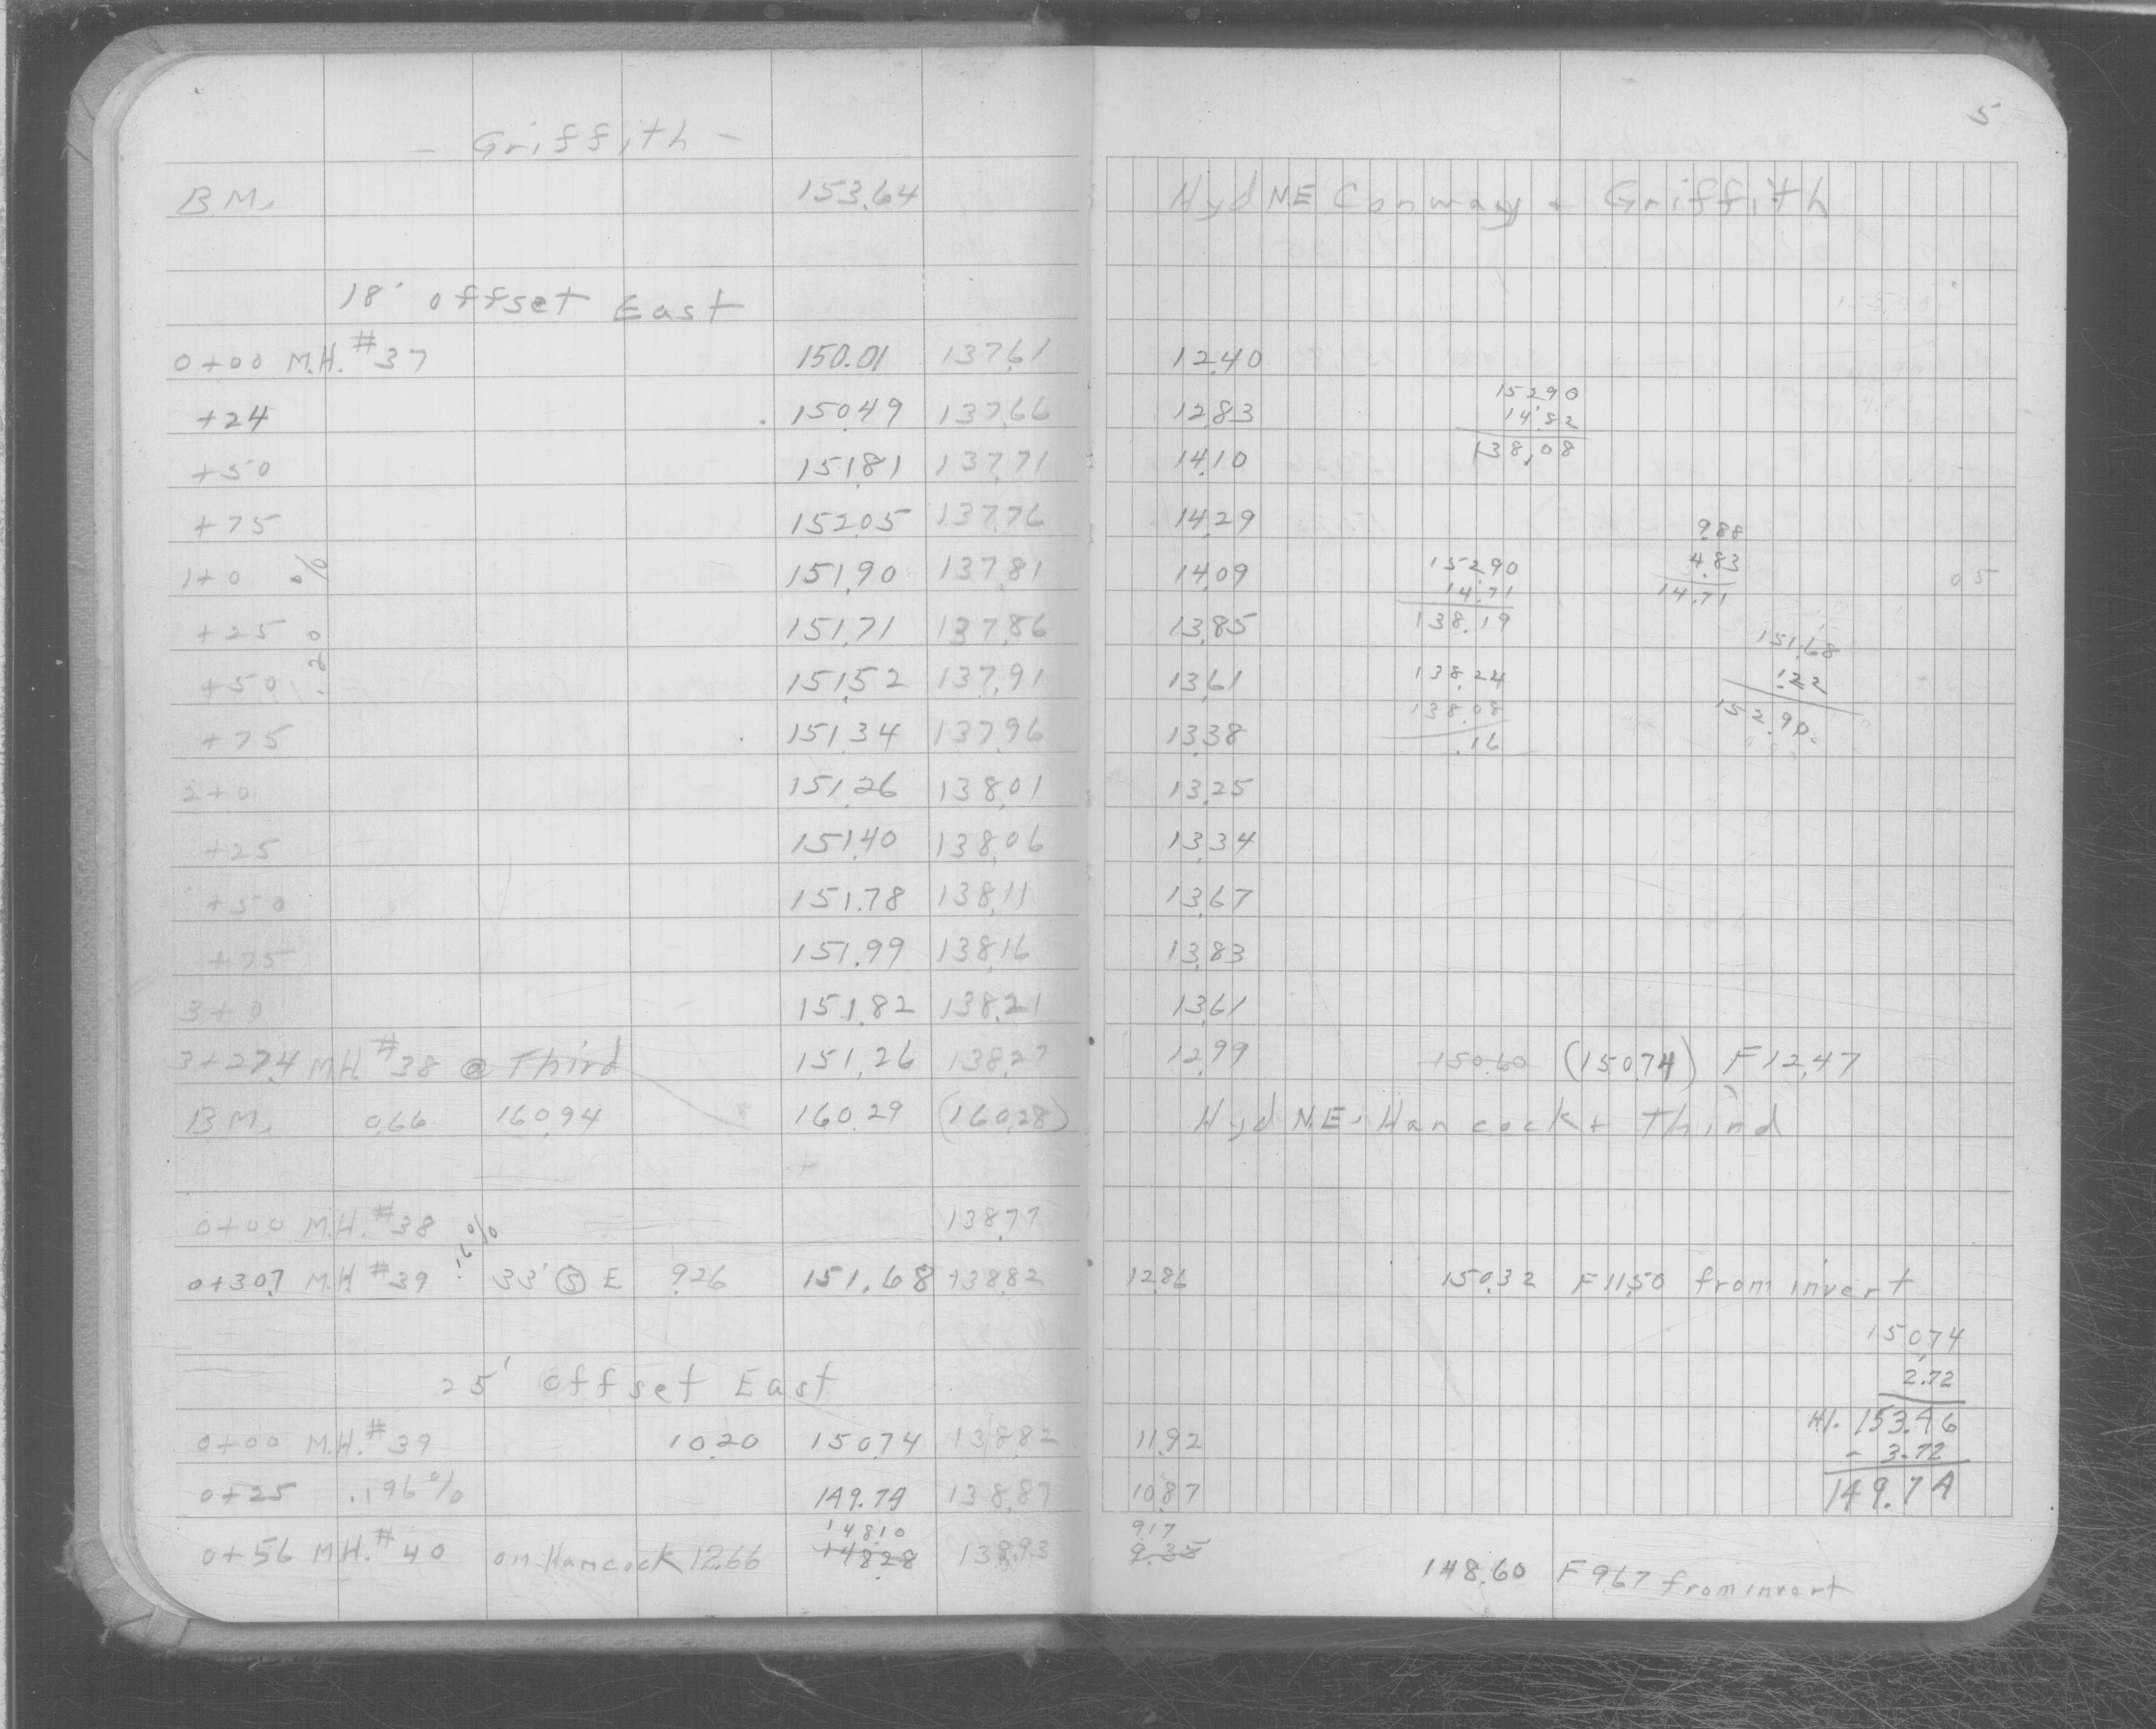 5
- Griffith -
B.M. 153.64 Hyd NE Conway + Griffith
18' offset East
0+00 M.H. #37 150.01 137.61 12.40
+24 150.49 137.66 12.83
+50 151.81 137.71 14.10
+75 152.05 137.76 14.29
1+0 151.90 137.81 14.09
+25 151.71 137.86 13.85
+50 151.52 137.91 13.61
+75 151.34 137.96 13.38
2+0 151.26 138.01 13.25
+25 151.40 138.06 13.34
+50 151.78 138.11 13.67
+75 151.99 138.16 13.83
3+0 151.82 138.21 13.61
3+27.4 M.H. #38 @ Third 151.26 138.27 12.99 150.60 (150.74) F 12.47
B.M. 0.66 160.94 160.29 (160.28) Hyd N.E. Hancock + Third
0+00 M.H. #38 138.77
.16%
0+30.7 M.H. #39 33' S E 9.26 151.68 138.82 12.86 150.32 F 11.50 from invert
25' offset East
0+00 M.H. #39 10.20 150.74 138.82 11.92
0+25 .196% 149.74 138.87 10.87
148.10 9.17
0+56 M.H. #40 on Hancock 12.66 148.28 138.93 9.35 148.60 F 9.67 from invert
152.90
14.82
138.08
9.88
4.83
14.71
152.90
14.71
138.19
05
151.68
1.22
152.90
138.24
138.08
.16
150.74
2.72
HI. 153.46
- 3.72
149.74